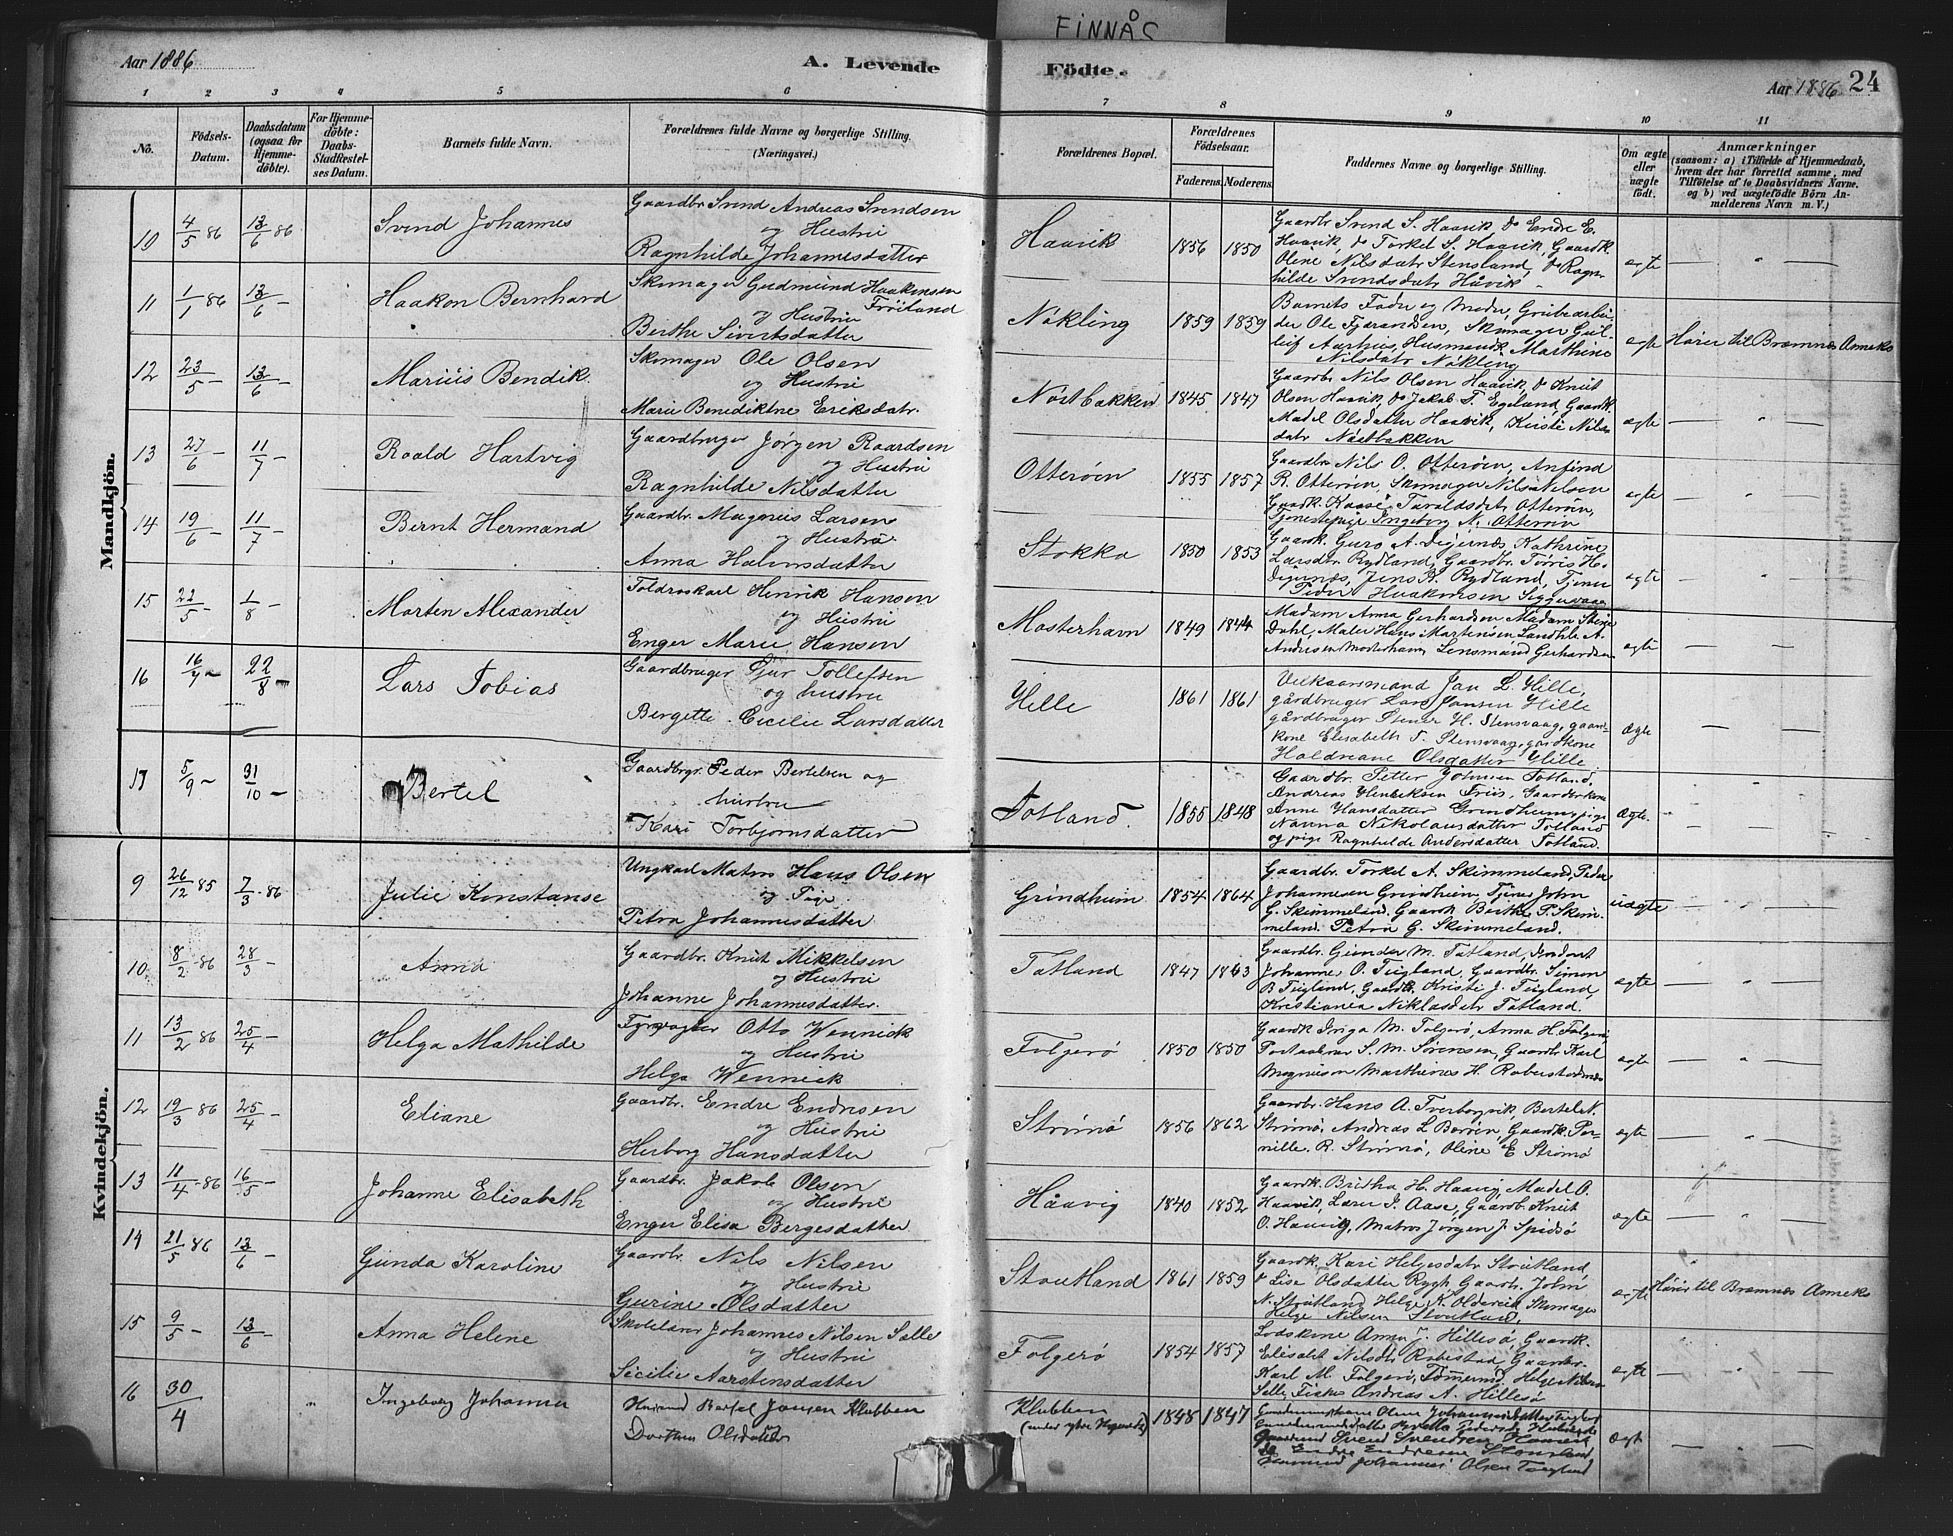 FINNÅS
Aar 1886
A. Levende
Födte.
Aar 1886
24
1 2 3 4 5 6 7 8 9 10 11
No.
Födsels-Datum.
Daabsdatum (ogsaa for Hjemmedöbte).
For Hjemmedöbte: Daabs-Stadfæstelses Datum.
Barnets fulde Navn.
Forældrenes fulde Navne og borgerlige Stilling. (Næringsvei.)
Forældrenes Bopæl.
Forældrenes Födselsaar.
Faderens. Moderens.
Faddernes Navne og borgerlige Stilling.
Om ægte eller uægte födt.
Anmærkninger
(saasom: a) i Tilfælde af Hjemmedaab, hvem der har forrettet samme, med Tilföielse af to Daabsvidners Navne. og b) ved uægtefödte Börn Anmelderens Navn m. V.)
Mandkjön.
10 4/5 86 13/6 86 Svend Johannes
Gaardbr Svend Andreas Svendsen
og Hustru
Ragnhilde Johannesdatter
Haavik 1856 1850
Gaardbr Svend S. Haavik, do Endre E.
Haavik, do Torkel S. Haavik, Gaardk.
Oline Nilsdatr Stensland, do Ragn
hilde Svendsdatr Håvik
ægte
11 1/1 86 13/6 Haakon Bernhard
Skomager Gudmund Haakonsen
og Hustru Fröiland
Berthe Sivertsdatter
Nökling 1859 1859
Barnets Fader og Moder, Grubearbei
der Ole Tjerandsen, Skomager Gul
leif Aarhus, Husmandk Marthine
Nilsdatr Nökling
ægte Hörer til Bremnes Anneks
12 23/5 13/6 Marius Bendik.
Skomager Ole Olsen
og Hustru
Marie Benediktne Eriksdatr.
Nöstbakken 1845 1847
Gaardbr Nils Olsen Haavik, do Knut
Olsen Haavik, do Jakob T. Egeland Gaardk.
Madel Olsdatter Haavik, Kirsti Nils
datr Nöstbakken
ægte
13 27/6 11/7 Roald Hartvig
Gaardbruger Jörgen Roardsen
og Hustru
Ragnhilde Nilsdatter
Otteröen 1855 1857
Gaardbr Nils O. Otteröen, Anfind
R. Otteröen, Skomager Nils Nilsen
Gaardk. Taraldsdatr Otteröen,
Tjenestepige Ingeborg N. Otteröen
ægte
14 19/6 11/7 Bernt Hermand
Gaardbr. Magnus Larsen
og Hustru
Anna Halvorsdatter
Stokka 1850 1853
Gaardk. Guro A. Digernæs Kathrine
Larsdtr Rydland, Gaardbr. Törris H.
Digernæs, Jens R. Rydland, Tjener
Peder Haakonsen Siggervaag
ægte
15 22/5 1/8 Morten Alexander
Toldroskarl Henrik Hansen
og Hustru
Enger Marie Hansen
Mosterhavn 1849 1844
Madam Anna Gerhardsen Madam Stine
Dahl, Maler Hans Martensen
Andresen Mosterhavn Lensmand Gerhardsen
ægte
16 16/7 22/8 Lars Tobias
Gaardbruger Sjur Tollefsen
og hustru
Bergette Cecilie Larsdatter
Hille 1861 1861
Velkaarsmand Jan L. Hille,
gårdbruger Lars Jansen Hille
gårdbruger Stener H. Stensvaag, gaard-
kone Elisabeth T. Stensvaag, gårdkone
Haldriane Olsdatter Hille
Ægte
17 5/9 31/10 Bertel
Gaardbgr. Peder Bertelsen og
hustru
Kari Torbjørnsdatter
Totland. 1855 1848
Gaardbr. Petter Johnsen Totland,
Andreas Henriksen Friis, Gaardbr.kone
Anne Hansdatter Grindheim, pige
Nanna Nikolausdatter Totland
og pige Ragnhilde Andersdatter Totland.
Ægte.
Kvindekjön.
9 26/12 85 7/3 86 Julie Konstanse
Ungkarl Matros Hans Olsen
og Pige
Petra Johannesdatter
Grindheim 1854 1864
Gaardbr. Torkel A. Skimmeland, Peder
Johannesen Grindheim, Tjener John
G. Skimmeland, Gaardk Berthe P. Skim-
meland. Petra G. Skimmeland.
uægte
10 8/2 86 28/3 Anna
Gaardbr. Knut Mikkelsen
og Hustru
Johanne Johannesdatter.
Totland 1847 1843
Gaardbr. Gunder M. Totland,
Johannes O. Teigland, Gaardbr. Simon
B Teigland, Gaardk. Kristi J. Teigland,
Kristianea Niklasdatr Totland.
ægte
11 13/2 86 25/4 Helga Mathilde
Fyrvogter Otto Wennick
og Hustru
Helga Wennick
Folgerö 1850 1850
Gaardk Inga M. Folgerö, Anna H. Folgerö
Postaabner S. M. Sörensen, Gaardbr Karl
Magnusen Marthines H. Roberstadnæs
ægte
12 19/3 86 25/4 Eliane
Gaardbr. Endre Endresen
og Hustru
Herborg Hansdatter
Strömö 1856 1862
Gaardbr. Hans A. Tverborgvik, Bertel N.
Strömö Andreas L Börröen, Gaardk. Per-
nille. R. Strömö, Oline E Strömö
ægte
13 11/4 86 16/5 Johanne Elisabeth
Gaardbr. Jakob Olsen
og Hustru
Enger Elisa Bergesdatter
Håavig 1840 1852
Gaardk. Britha H. Haavig Madel O.
Haavik, Lærer J. Aase, Gaardb. Knut
O. Haavig, Matros Jörgen J. Spidsö
ægte
14 21/5 86 13/6 Gunda Karoline
Gaardbr. Nils Nilsen
og Hustru
Gurine Olsdatter
Stoutland 1861 1859
Gaardk. Kari Helgesdatr Stoutland
do Lisa Olsdatter Rygh Gaardbr. John
N. Stoutland Helge K. Oldereid Skomager
Helge Nilsen Stoutland
ægte Hörer til Bremnes Anneks
15 9/5 13/6 Anna Helene
Skolelærer Johannes Nilsen Sælle
og Hustru
Sicilie Aarstensdatter
Folgerö 1854 1857
Lodskone Anna J. Hillesö, Gaardk.
Elisabet Nilsdtr Robestad, Gaardbr.
Karl M. Folgerö, Tömermd. Helge Nilsen
Selle, Fisker Andreas A. Hillesö
ægte
16 30/4 Ingeborg Johanna
Husmd Bertel Jansen Klubben
Dorthea Olsdatter
Klubben
1848 1847
Svend Svendsen
Endre Endresen
Johannes Olsen Teigland
ægt